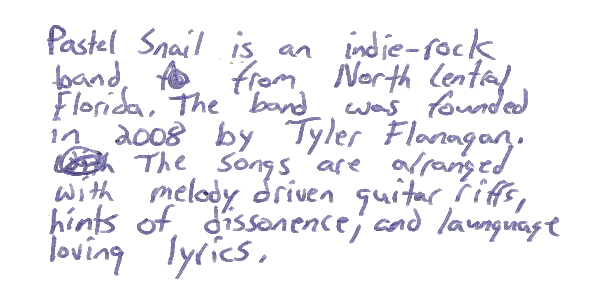 Pastel Snail is an indie-rock
band from North Central
Florida. The band was founded
in 2008 by Tyler Flanagan.
The songs are arranged
with melody driven guitar riffs,
hints of dissonence, and launguage
loving lyrics.